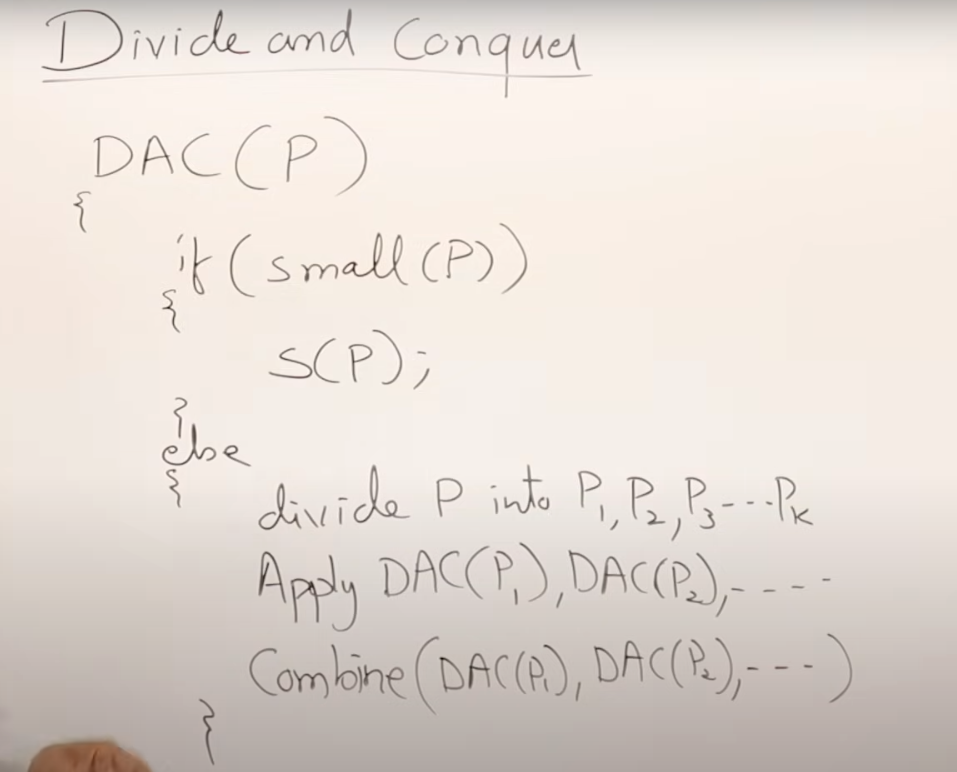 Divide and Conquer
DAC(P)
{
if(small(P))
{
S(P);
}
else
{
divide P into P₁, P₂, P₃---Pₖ
Apply DAC(P₁), DAC(P₂),----
Combine(DAC(P₁), DAC(P₂),---)
}